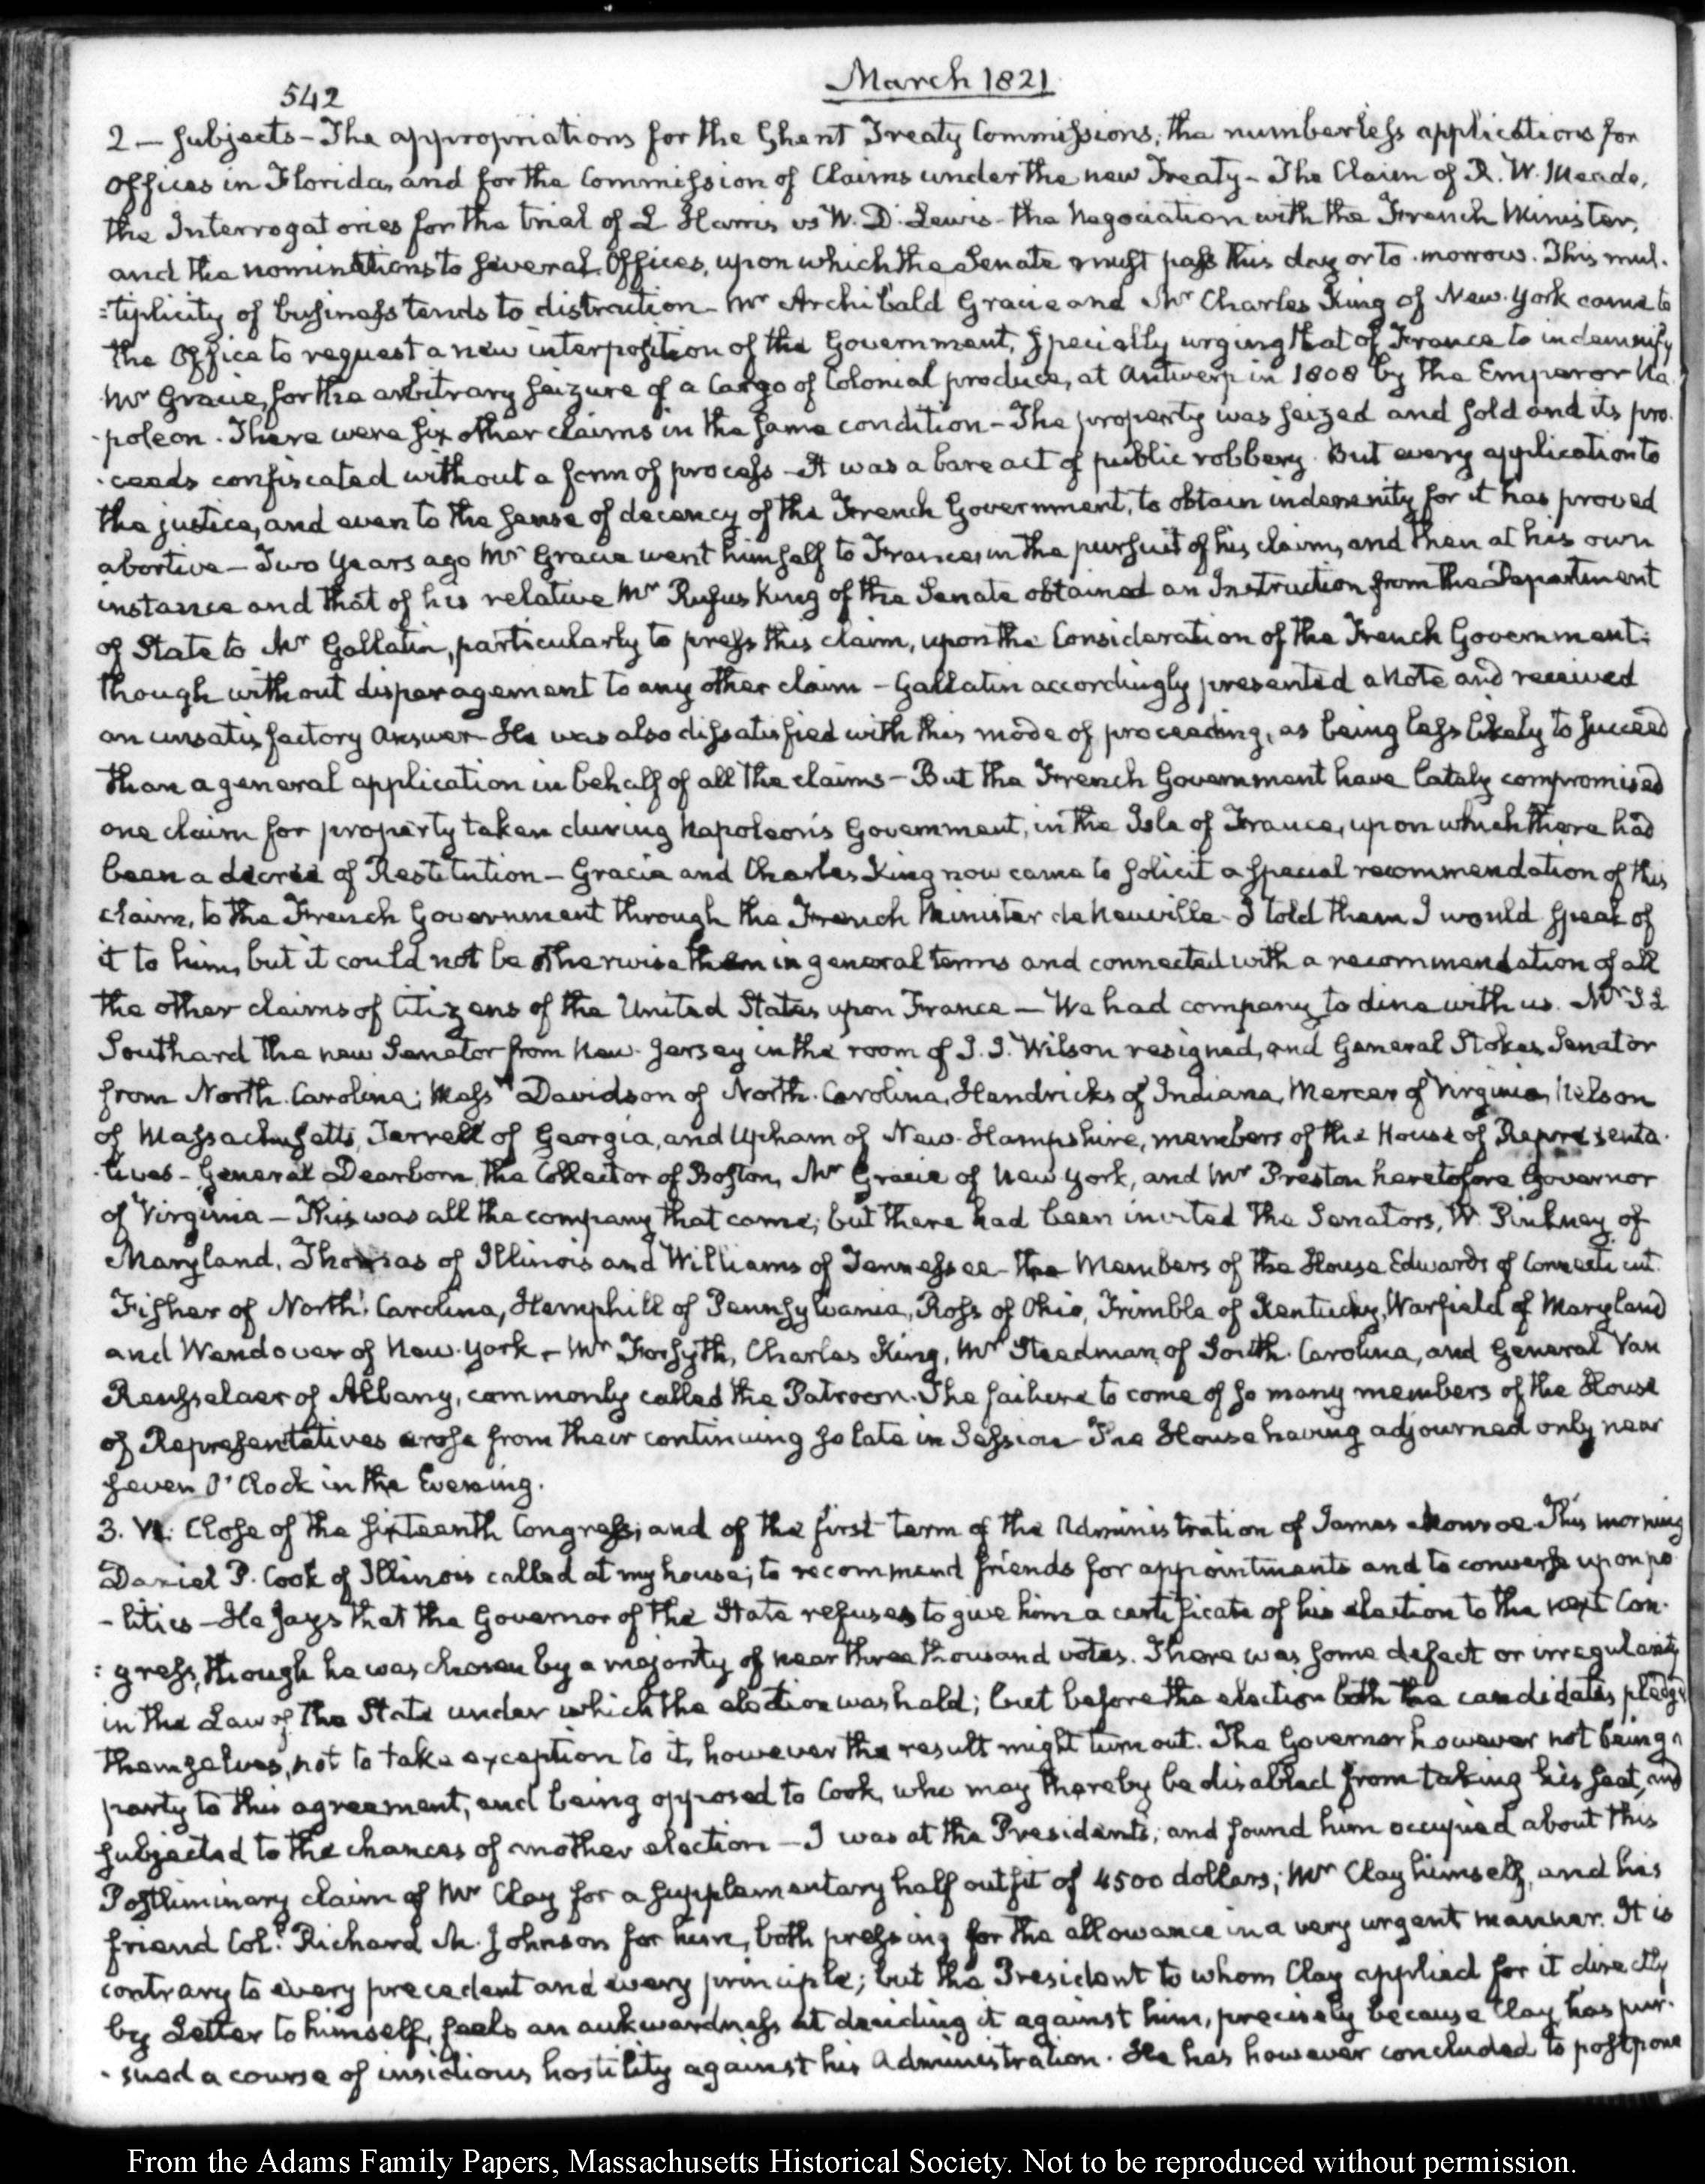 542
March 1821
2 — subjects – The appropriations for the Ghent Treaty Commissions, the numberless applications for
offices in Florida, and for the Commission of Claims under the new Treaty – The Claim of R. W. Meade,
the Interrogatories for the trial of L Harris vs W. D. Lewis – the Negociation with the French Minister,
and the nominations to several Offices, upon which the Senate must pass this day or to-morrow. This mul-
=tiplicity of business tends to distraction – Mr Archibald Gracie and Mr Charles King of New-York came to
the Office to request a new interposition of the Government, specially urging that of France to indemnify
Mr Gracie, for the arbitrary seizure of a Cargo of Colonial produce, at Antwerp in 1808 by the Emperor Na-
-poleon. There were six other claims in the same condition – The property was seized and sold and its pro-
-ceeds confiscated without a form of process – It was a bare act of public robbery. But every application to
the justice, and even to the sense of decency of the French Government, to obtain indemnity for it has proved
abortive – Two years ago Mr Gracie went himself to France, in the pursuit of his claim, and then at his own
instance and that of his relative Mr Rufus King of the Senate obtained an Instruction from the Department
of State to Mr Gallatin, particularly to press this claim, upon the Consideration of the French Government:
though without disparagement to any other claim – Gallatin accordingly presented a Note and received
an unsatisfactory Answer – He was also dissatisfied with this mode of proceeding, as being less likely to succeed
than a general application in behalf of all the claims – But the French Government have lately compromised
one claim for property taken during Napoleon's Government, in the Isle of France, upon which there had
been a decree of Restitution – Gracie and Charles King now came to solicit a special recommendation of this
claim, to the French Government through the French Minister de Neuville – I told them I would speak of
it to him, but it could not be otherwise than in general terms and connected with a recommendation of all
the other claims of Citizens of the United States upon France — We had company to dine with us. Mr S L
Southard the new Senator from New-Jersey in the room of J. J. Wilson resigned, and General Stokes Senator
from North-Carolina; Messrs Davidson of North-Carolina, Hendricks of Indiana, Mercer of Virginia, Nelson
of Massachusetts, Terrell of Georgia, and Upham of New-Hampshire, members of the House of Representa-
-tives – General Dearborn, the Collector of Boston, Mr Gracie of New York, and Mr Preston heretofore Governor
of Virginia – This was all the company that came; but there had been invited the Senators, W. Pinkney of
Maryland, Thomas of Illinois and Williams of Tennessee – the Members of the House Edwards of Connecticut.
Fisher of North-Carolina, Hemphill of Pennsylvania, Ross of Ohio, Trimble of Kentucky, Warfield of Maryland
and Wendover of New-York – Mr Forsyth, Charles King, Mr Steedman of South-Carolina, and General Van
Rensselaer of Albany, commonly called the Patroon. The failure to come of so many members of the House
of Representatives arose from their continuing so late in Session – The House having adjourned only near
seven O'Clock in the Evening.
3. VI. Close of the sixteenth Congress; and of the first term of the Administration of James Monroe. This morning
Daniel P. Cook of Illinois called at my house; to recommend friends for appointments and to converse upon po-
-litics – He says that the Governor of the State refuses to give him a certificate of his election to the next Con-
:gress, though he was chosen by a majority of near three thousand votes. There was some defect or irregularity
in the Law of the State under which the election was held; but before the election both the candidates pledged
themselves, not to take exception to it, however the result might turn out. The Governor however not being a
party to this agreement, and being opposed to Cook, who may thereby be disabled from taking his seat, and
subjected to the chances of another election – I was at the President's; and found him occupied about this
Postliminary claim of Mr Clay for a supplementary half outfit of 4500 dollars; Mr Clay himself, and his
friend Coll Richard M. Johnson for him, both pressing for the allowance in a very urgent manner. It is
contrary to every precedent and every principle; but the President to whom Clay applied for it directly
by Letter to himself, feels an awkwardness at deciding it against him, precisely because Clay has pur-
-sued a course of insidious hostility against his Administration. He has however concluded to postpone
From the Adams Family Papers, Massachusetts Historical Society. Not to be reproduced without permission.